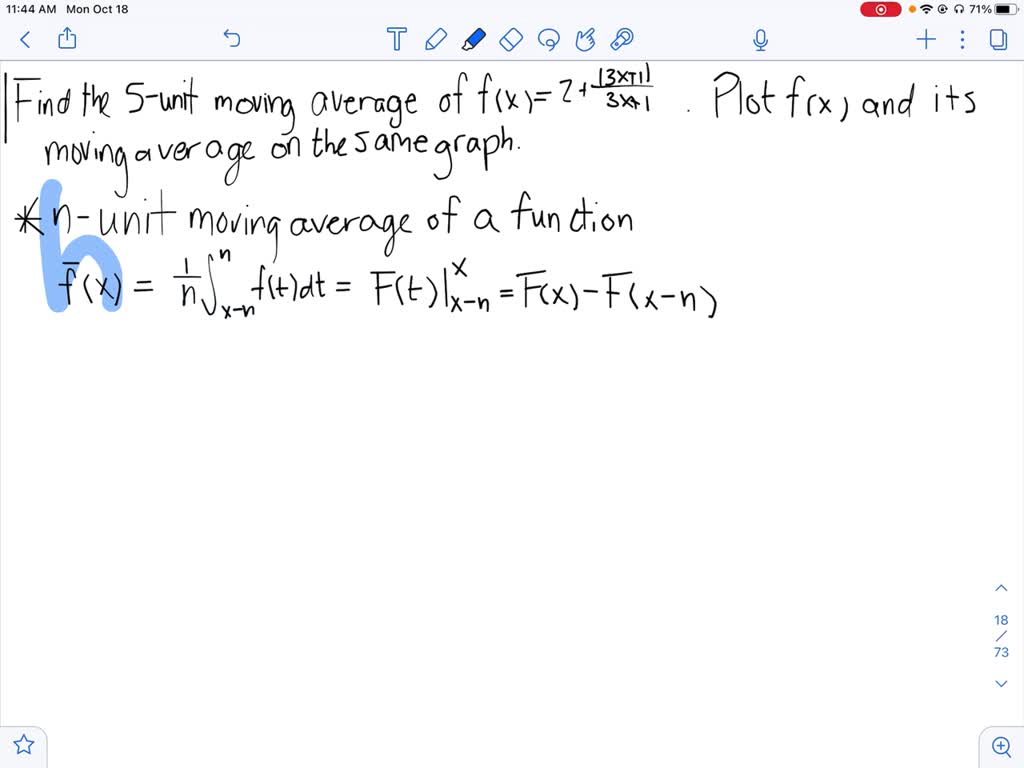 11:44 AM Mon Oct 18
71%
T
Find the 5-unit moving average of f(x)=2+|3x+1|/3x+1 . Plot f(x) and its
moving average on the same graph.
* n-unit moving average of a function
f̄(x) = 1/n ∫_{x-n}^{n} f(t)dt = F(t)|_{x-n}^{x} = F(x)-F(x-n)
18
/
73